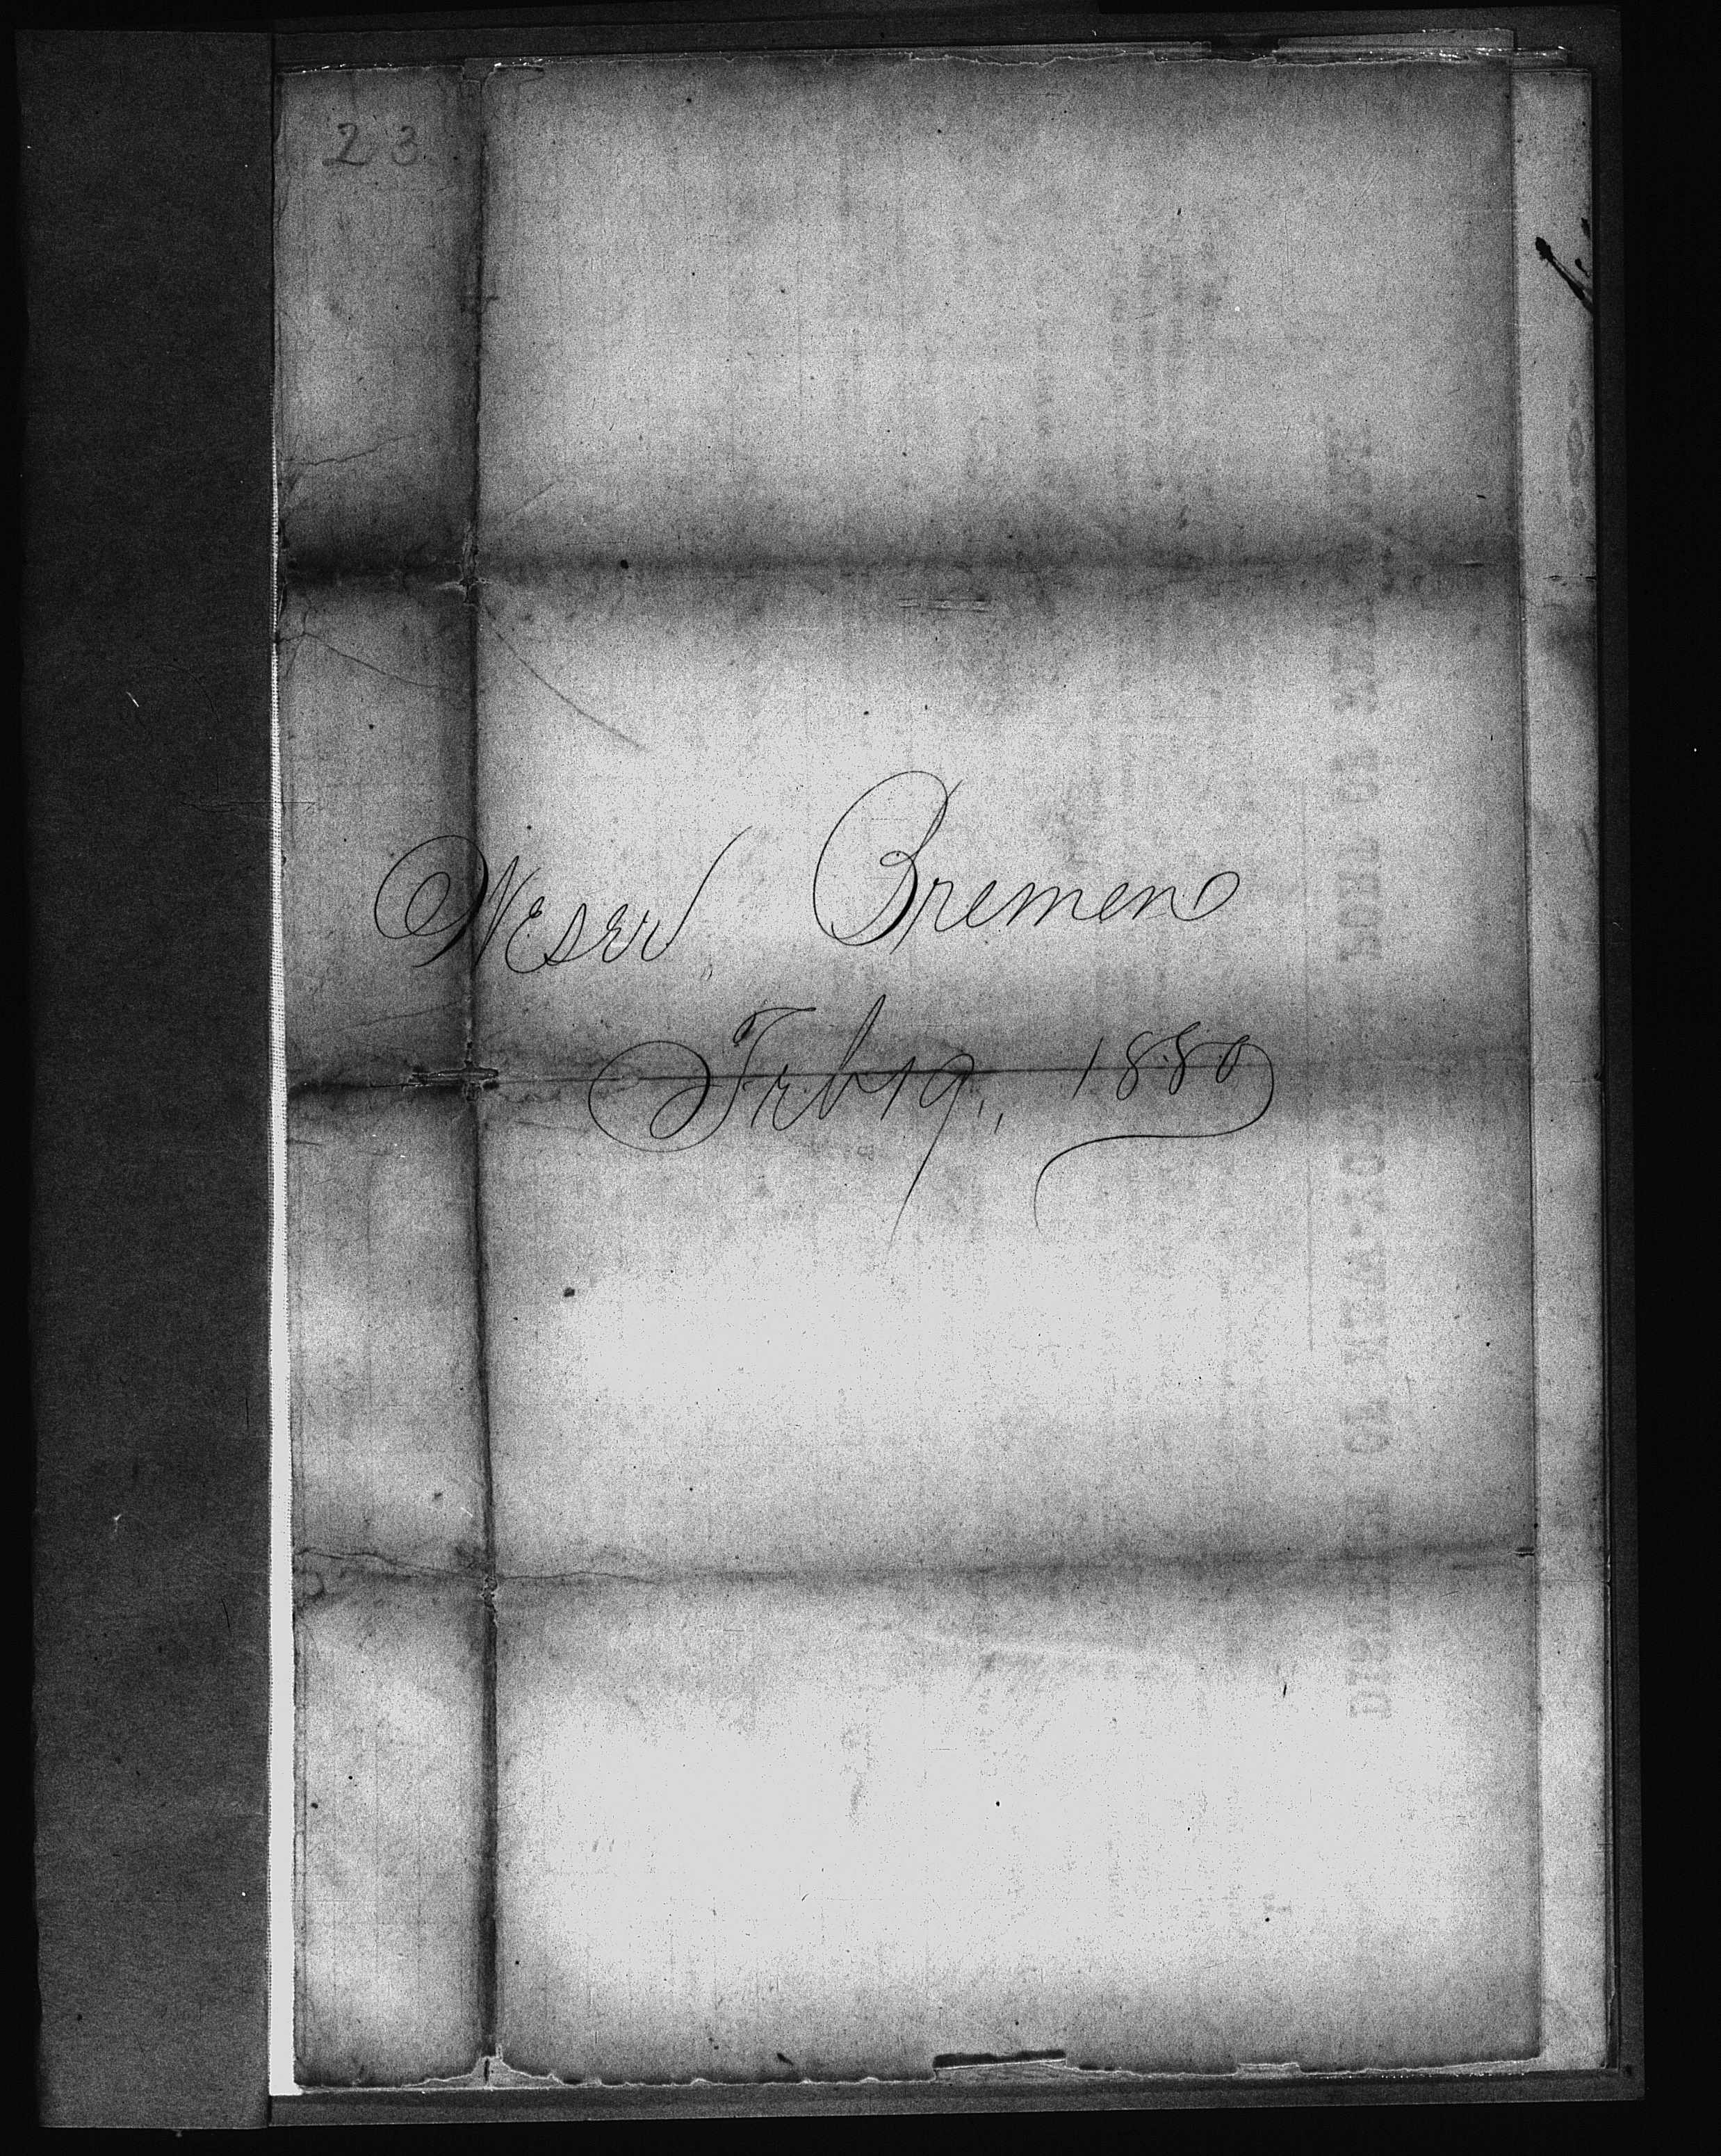 23
Weser, Bremen
Feb 19, 1880